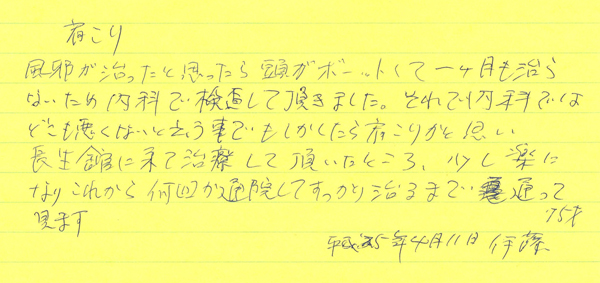 肩こり
風邪が治ったと思ったら頭がボーットして一ヶ月も治ら
ないため内科で検査して頂きました。それで内科では
どこも悪くないと云う事でもしかしたら肩こりかと思い
長生館に来て治療して頂いたところ、少し楽に
なりこれから何回か通院してすっかり治るまで通って
見ます
75才
平成25年4月11日 伊藤